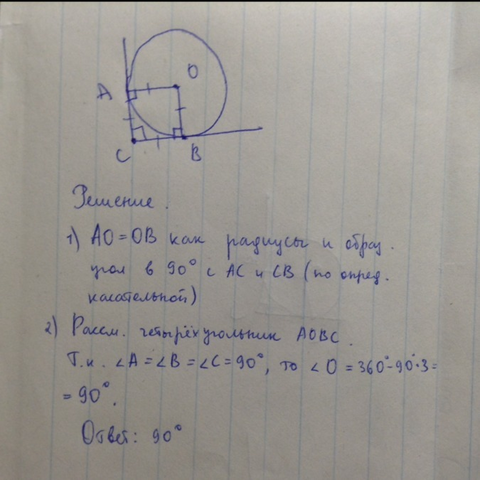 A
O
C
B
Решение.
1) AO=OB как радиусы и образ.
угол в 90° с AC и CB (по опред.
касательной)
2) Рассм. четырёхугольник AOBC.
Т.к. ∠A=∠B=∠C=90°, то ∠O=360°-90°·3=
=90°.
Ответ: 90°